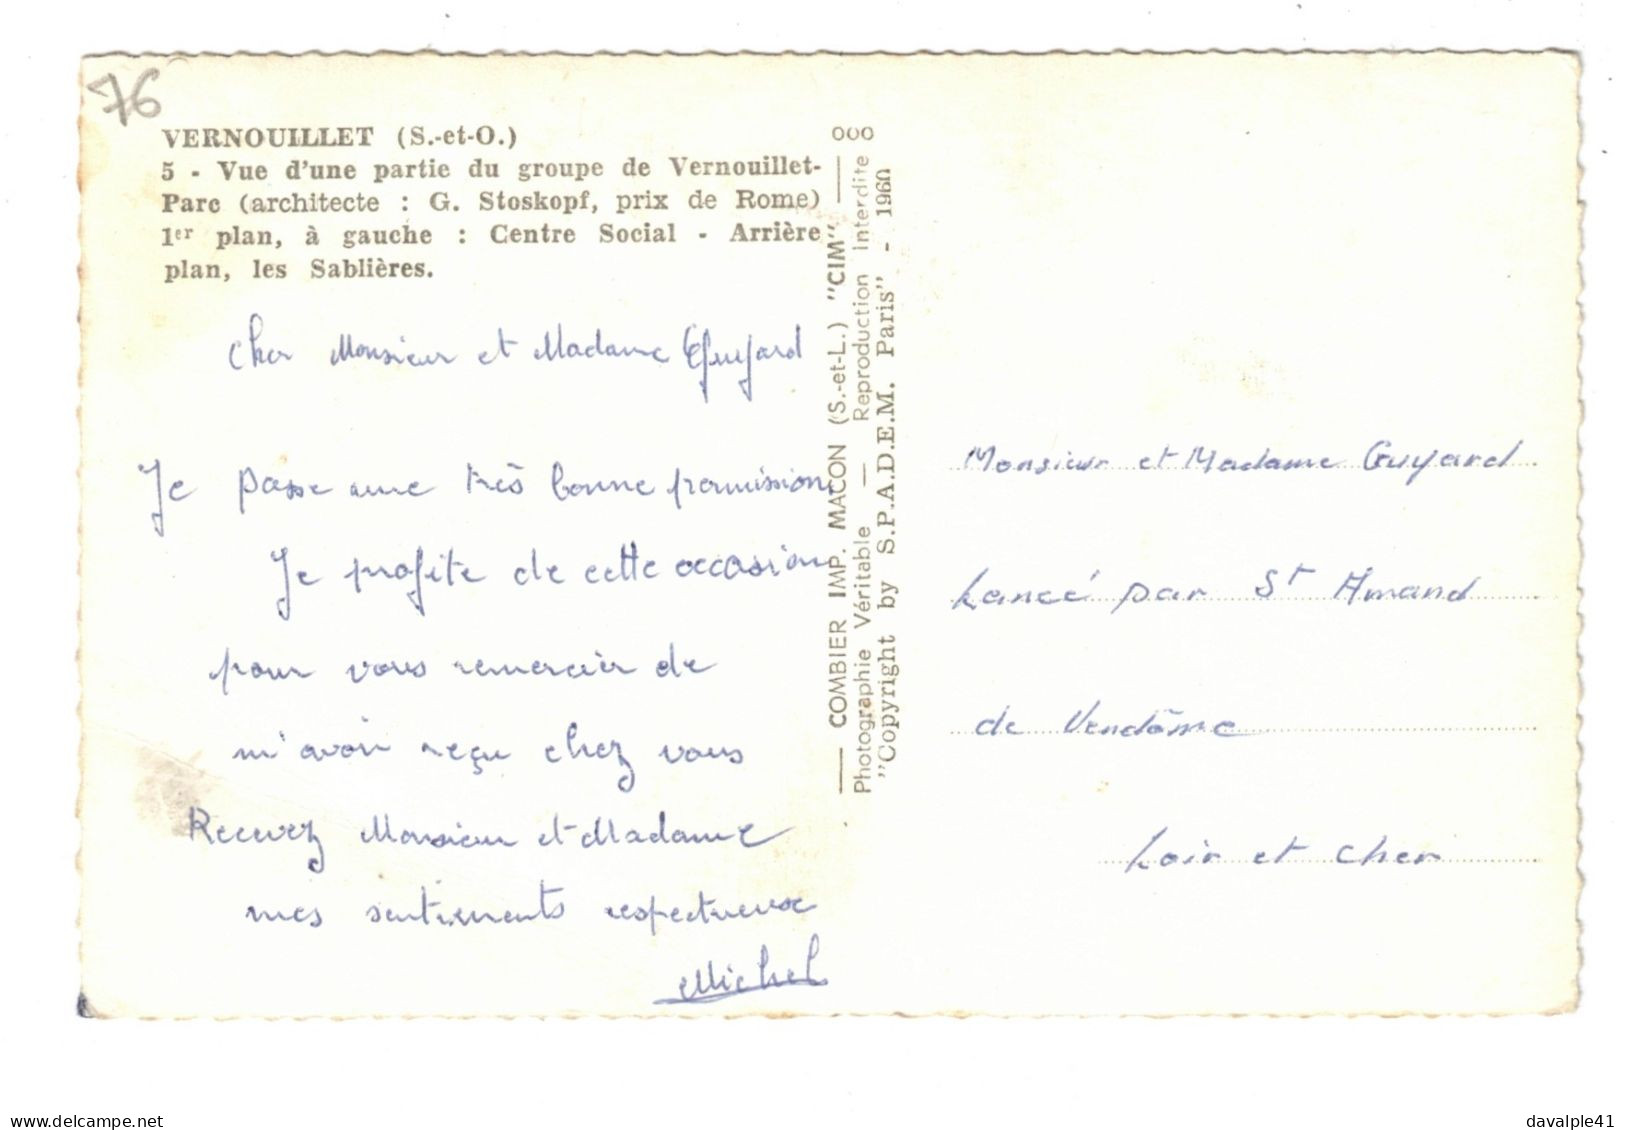 76
VERNOUILLET (S.-et-O.)
5 - Vue d'une partie du groupe de Vernouillet-
Parc (architecte : G. Stoskopf, prix de Rome)
1er plan, à gauche : Centre Social - Arrière
plan, les Sablières.
Cher Monsieur et Madame Guyard
Je passe une très bonne permission
Je profite de cette occasion
pour vous remercier de
m'avoir reçu chez vous
Recevez Monsieur et Madame
mes sentiments respectueux
Michel
000
COMBIER IMP. MACON (S.-et-L.) "CIM"
Photographie Véritable — Reproduction Interdite
"Copyright by S.P.A.D.E.M. Paris" - 1960
Monsieur et Madame Guyard
Lancé par St Amand
de Vendôme
Loir et Cher
delcampe.net
davalple41